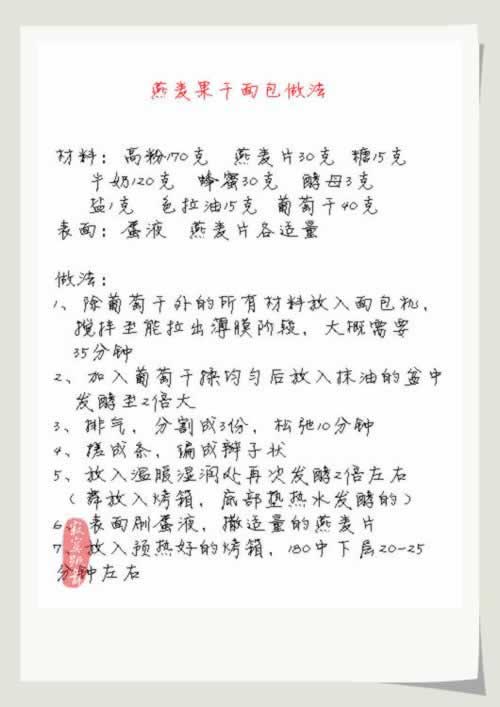 燕麦果干面包做法
材料：高粉170克 燕麦片30克 糖15克
牛奶120克 蜂蜜30克 酵母3克
盐1克 色拉油15克 葡萄干40克
表面：蛋液 燕麦片各适量
做法：
1、除葡萄干外的所有材料放入面包机，
搅拌至能拉出薄膜阶段，大概需要
35分钟
2、加入葡萄干揉均匀后放入抹油的盆中
发酵至2倍大
3、排气，分割成3份，松弛10分钟
4、搓成条，编成辫子状
5、放入温暖湿润处再次发酵2倍左右
（舞放入烤箱，底部垫热水发酵的）
6、表面刷蛋液，撒适量的燕麦片
7、放入预热好的烤箱，180中下层20-25
分钟左右